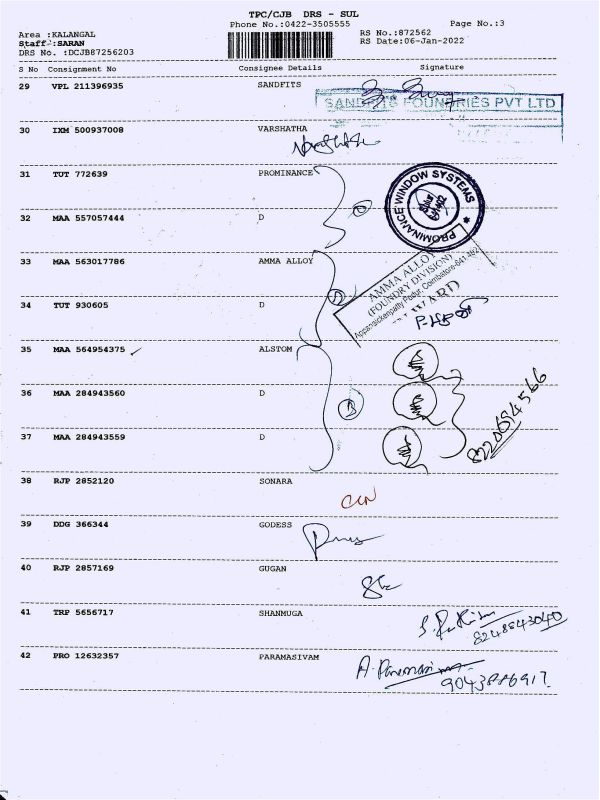 TPC/CJB DRS - SUL
Phone No.:0422-3505555
Page No.:3
Area :KALANGAL
Staff :SARAN
DRS No. :DCJB87256203
RS No.:872562
RS Date:06-Jan-2022
S No Consignment No Consignee Details Signature
29 VPL 211396935 SANDFITS
SANDFITS FOUNDRIES PVT LTD
30 IXM 500937008 VARSHATHA
31 TUT 772639 PROMINANCE
PROMINANCE WINDOW SYSTEMS
32 MAA 557057444 D
33 MAA 563017786 AMMA ALLOY
AMMA ALLOY
(FOUNDRY DIVISION)
34 TUT 930605 D
35 MAA 564954375 ALSTOM
36 MAA 284943560 D
3
8220694566
37 MAA 284943559 D
38 RJP 2852120 SONARA
39 DDG 366344 GODESS
40 RJP 2857169 GUGAN
41 TRP 5656717 SHANMUGA
8248543040
42 PRO 12632357 PARAMASIVAM